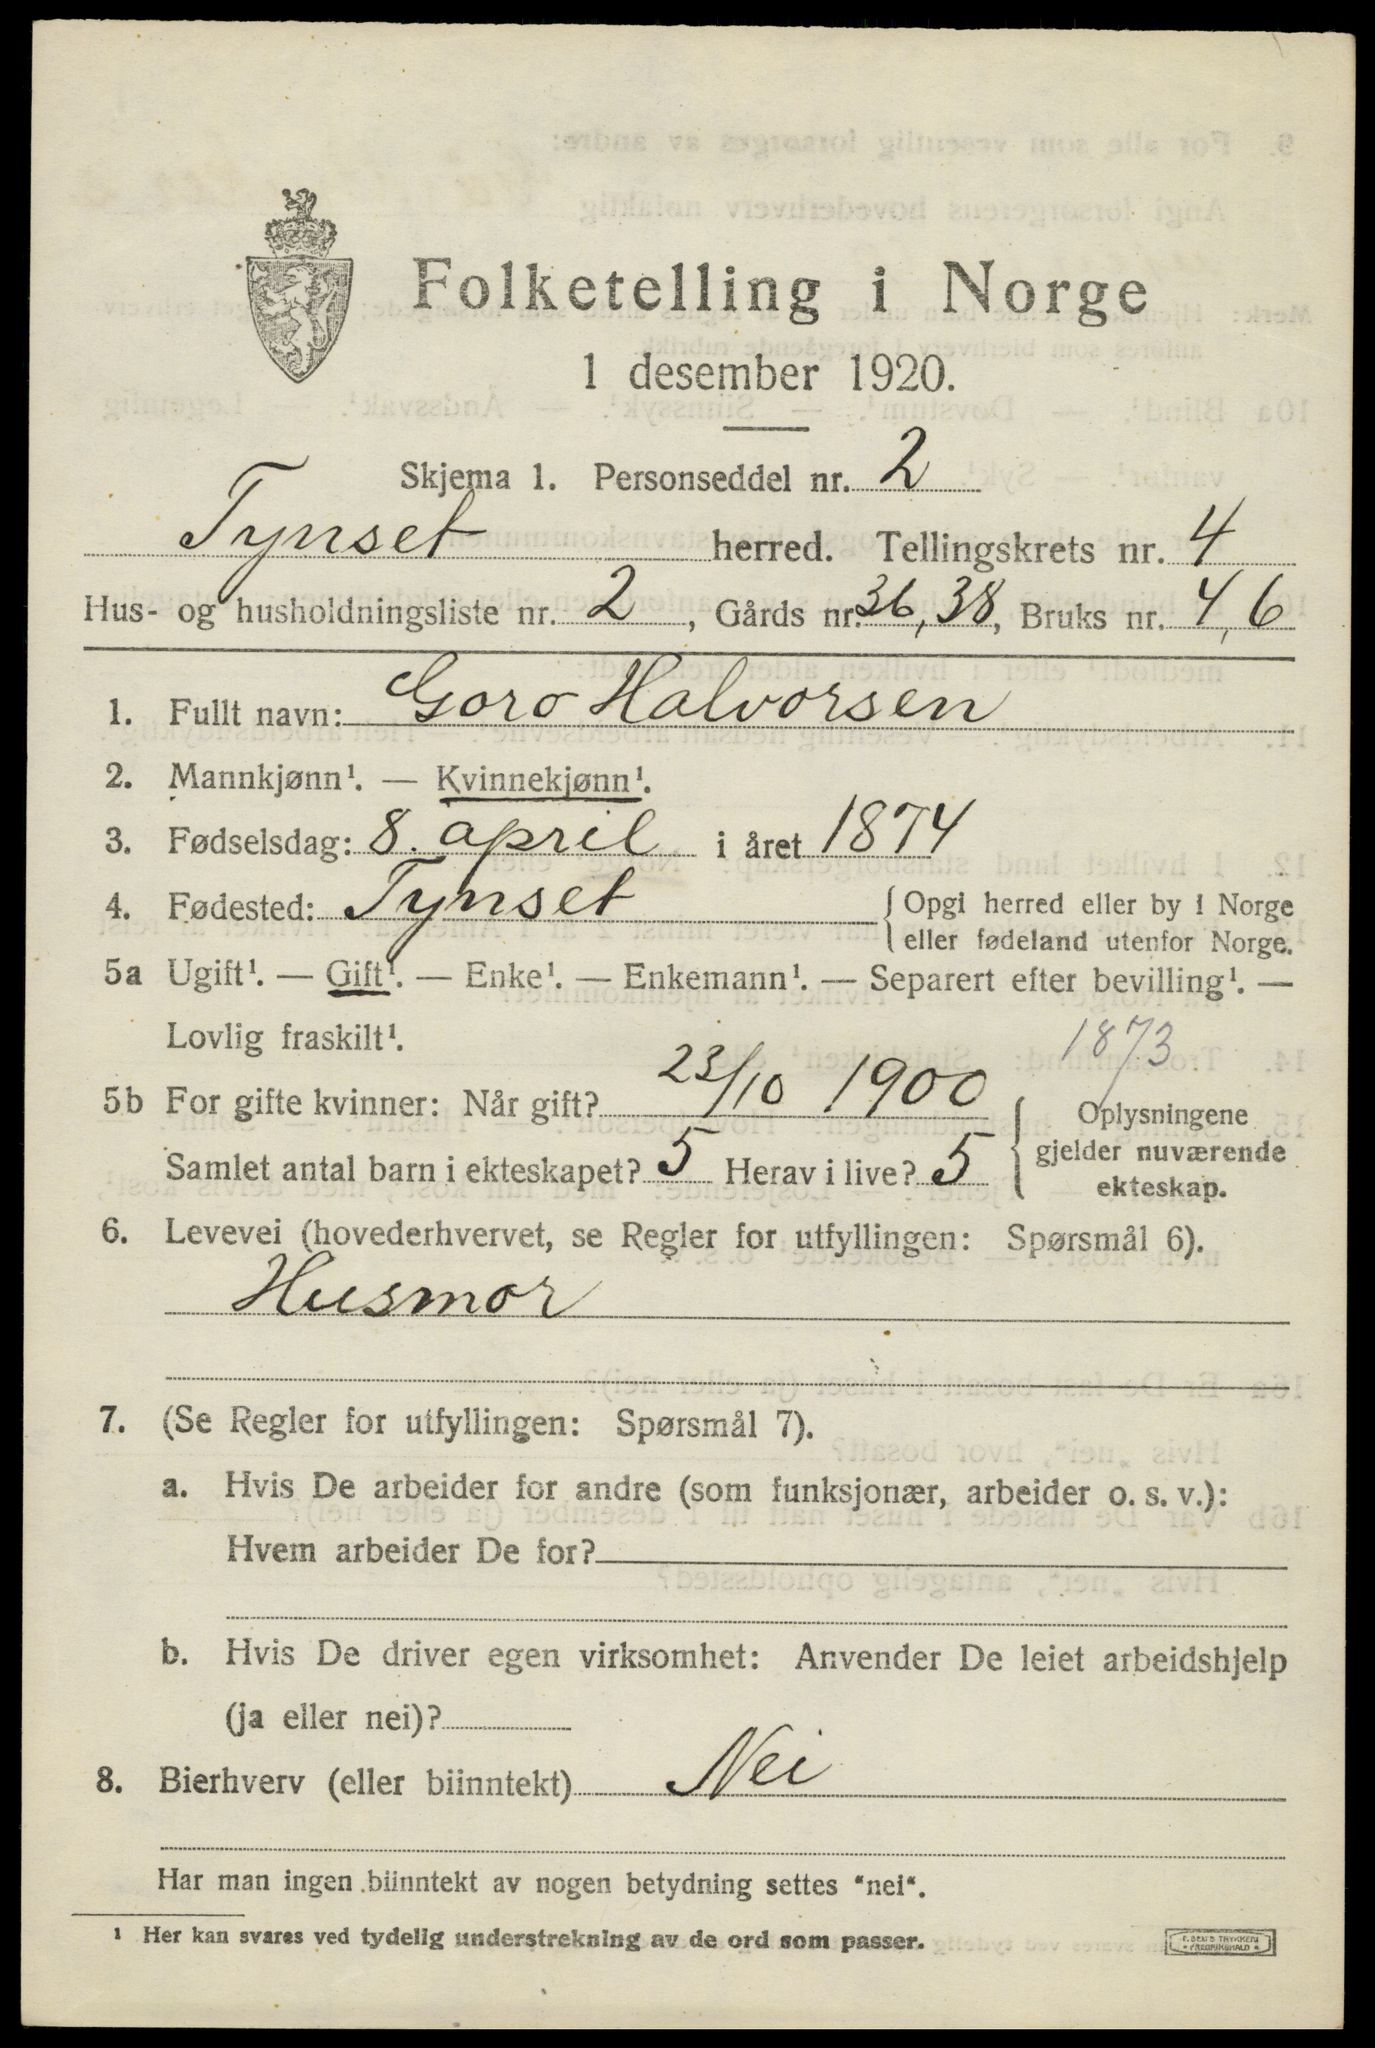 Folketelling i Norge
1 desember 1920.
Skjema 1. Personseddel nr. 2
Tynset herred. Tellingskrets nr. 4
Hus- og husholdningsliste nr. 2, Gårds nr. 36, 38, Bruks nr. 4, 6
1. Fullt navn: Goro Halvorsen
2. Mannkjønn¹. — Kvinnekjønn¹.
3. Fødselsdag: 8. april i året 1874
4. Fødested: Tynset { Opgi herred eller by i Norge
eller fødeland utenfor Norge.
5a Ugift¹. — Gift¹. — Enke¹. — Enkemann¹. — Separert efter bevilling¹. —
Lovlig fraskilt¹. 1873
5b For gifte kvinner: Når gift? 23/10 1900 { Oplysningene
gjelder nuværende
Samlet antal barn i ekteskapet? 5 Herav i live? 5 ekteskap.
6. Levevei (hovederhvervet, se Regler for utfyllingen: Spørsmål 6).
Husmor
7. (Se Regler for utfyllingen: Spørsmål 7).
a. Hvis De arbeider for andre (som funksjonær, arbeider o. s. v.):
Hvem arbeider De for?
b. Hvis De driver egen virksomhet: Anvender De leiet arbeidshjelp
(ja eller nei)?
8. Bierhverv (eller biinntekt) Nei
Har man ingen biinntekt av nogen betydning settes "nei".
¹ Her kan svares ved tydelig understrekning av de ord som passer.